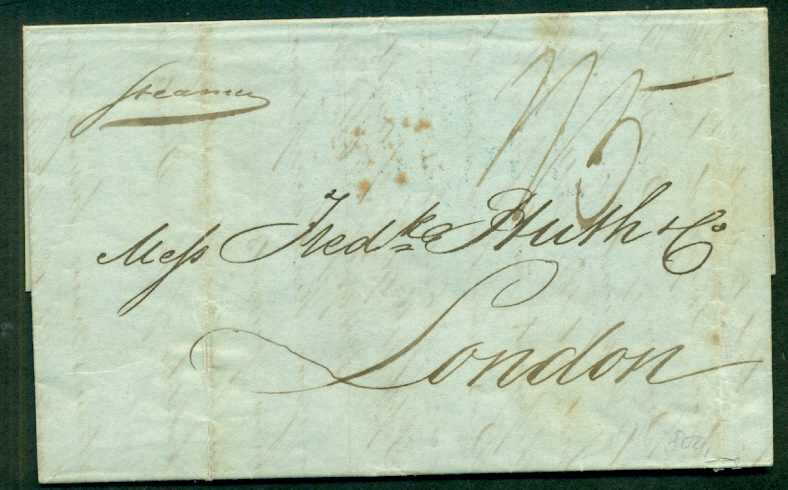 Steamer
1/5
Mess Fredk Huth & Co
London